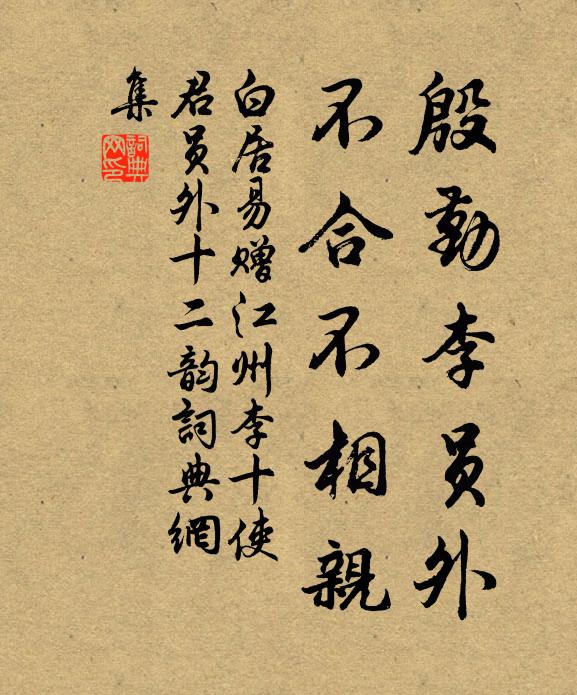 殷勤李员外
不合不相親
白居易赠江州李十使
君员外十二韵詞典網
集
詞典網印